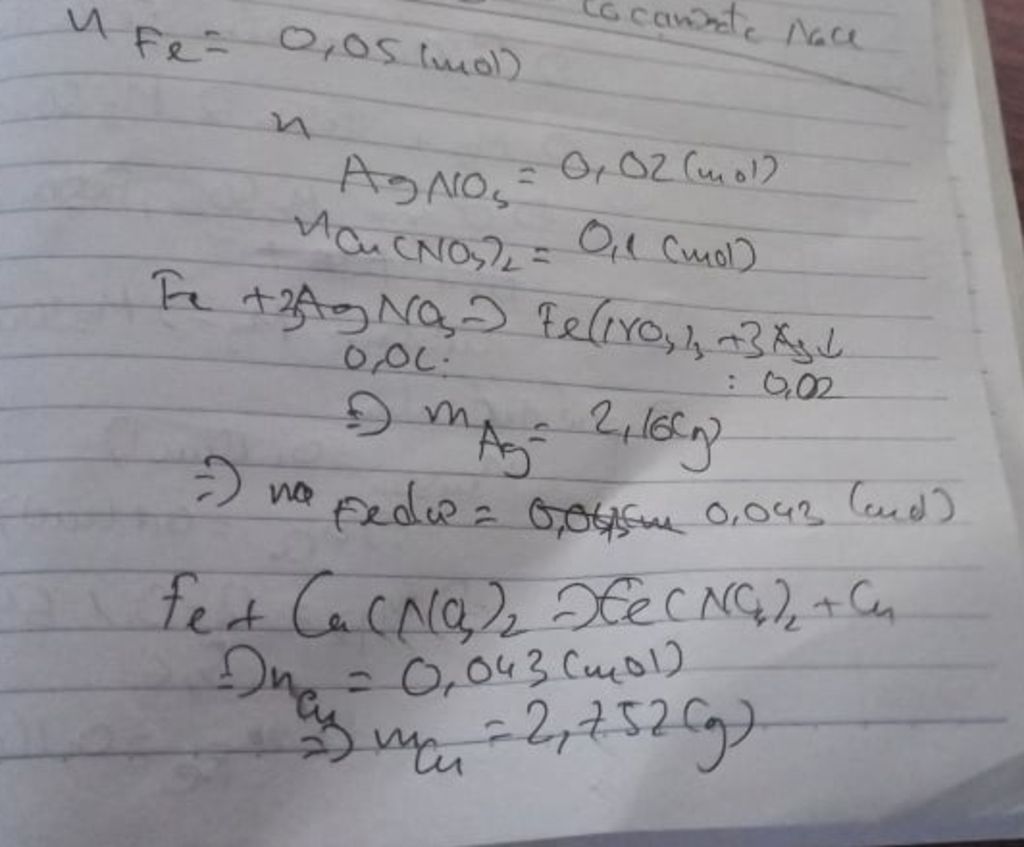 Cacanxtc NaCl
n Fe = 0,05 (mol)
n AgNO3 = 0,02 (mol)
n Cu(NO3)2 = 0,1 (mol)
Fe + 3AgNO3 => Fe(NO3)3 + 3Ag↓
: 0,02
=> m Ag = 2,16(g)
=> Fe dư = 0,043 (mol)
Fe + Cu(NO3)2 => Fe(NO3)2 + Cu
=> n Cu = 0,043 (mol)
=> m Cu = 2,752 (g)